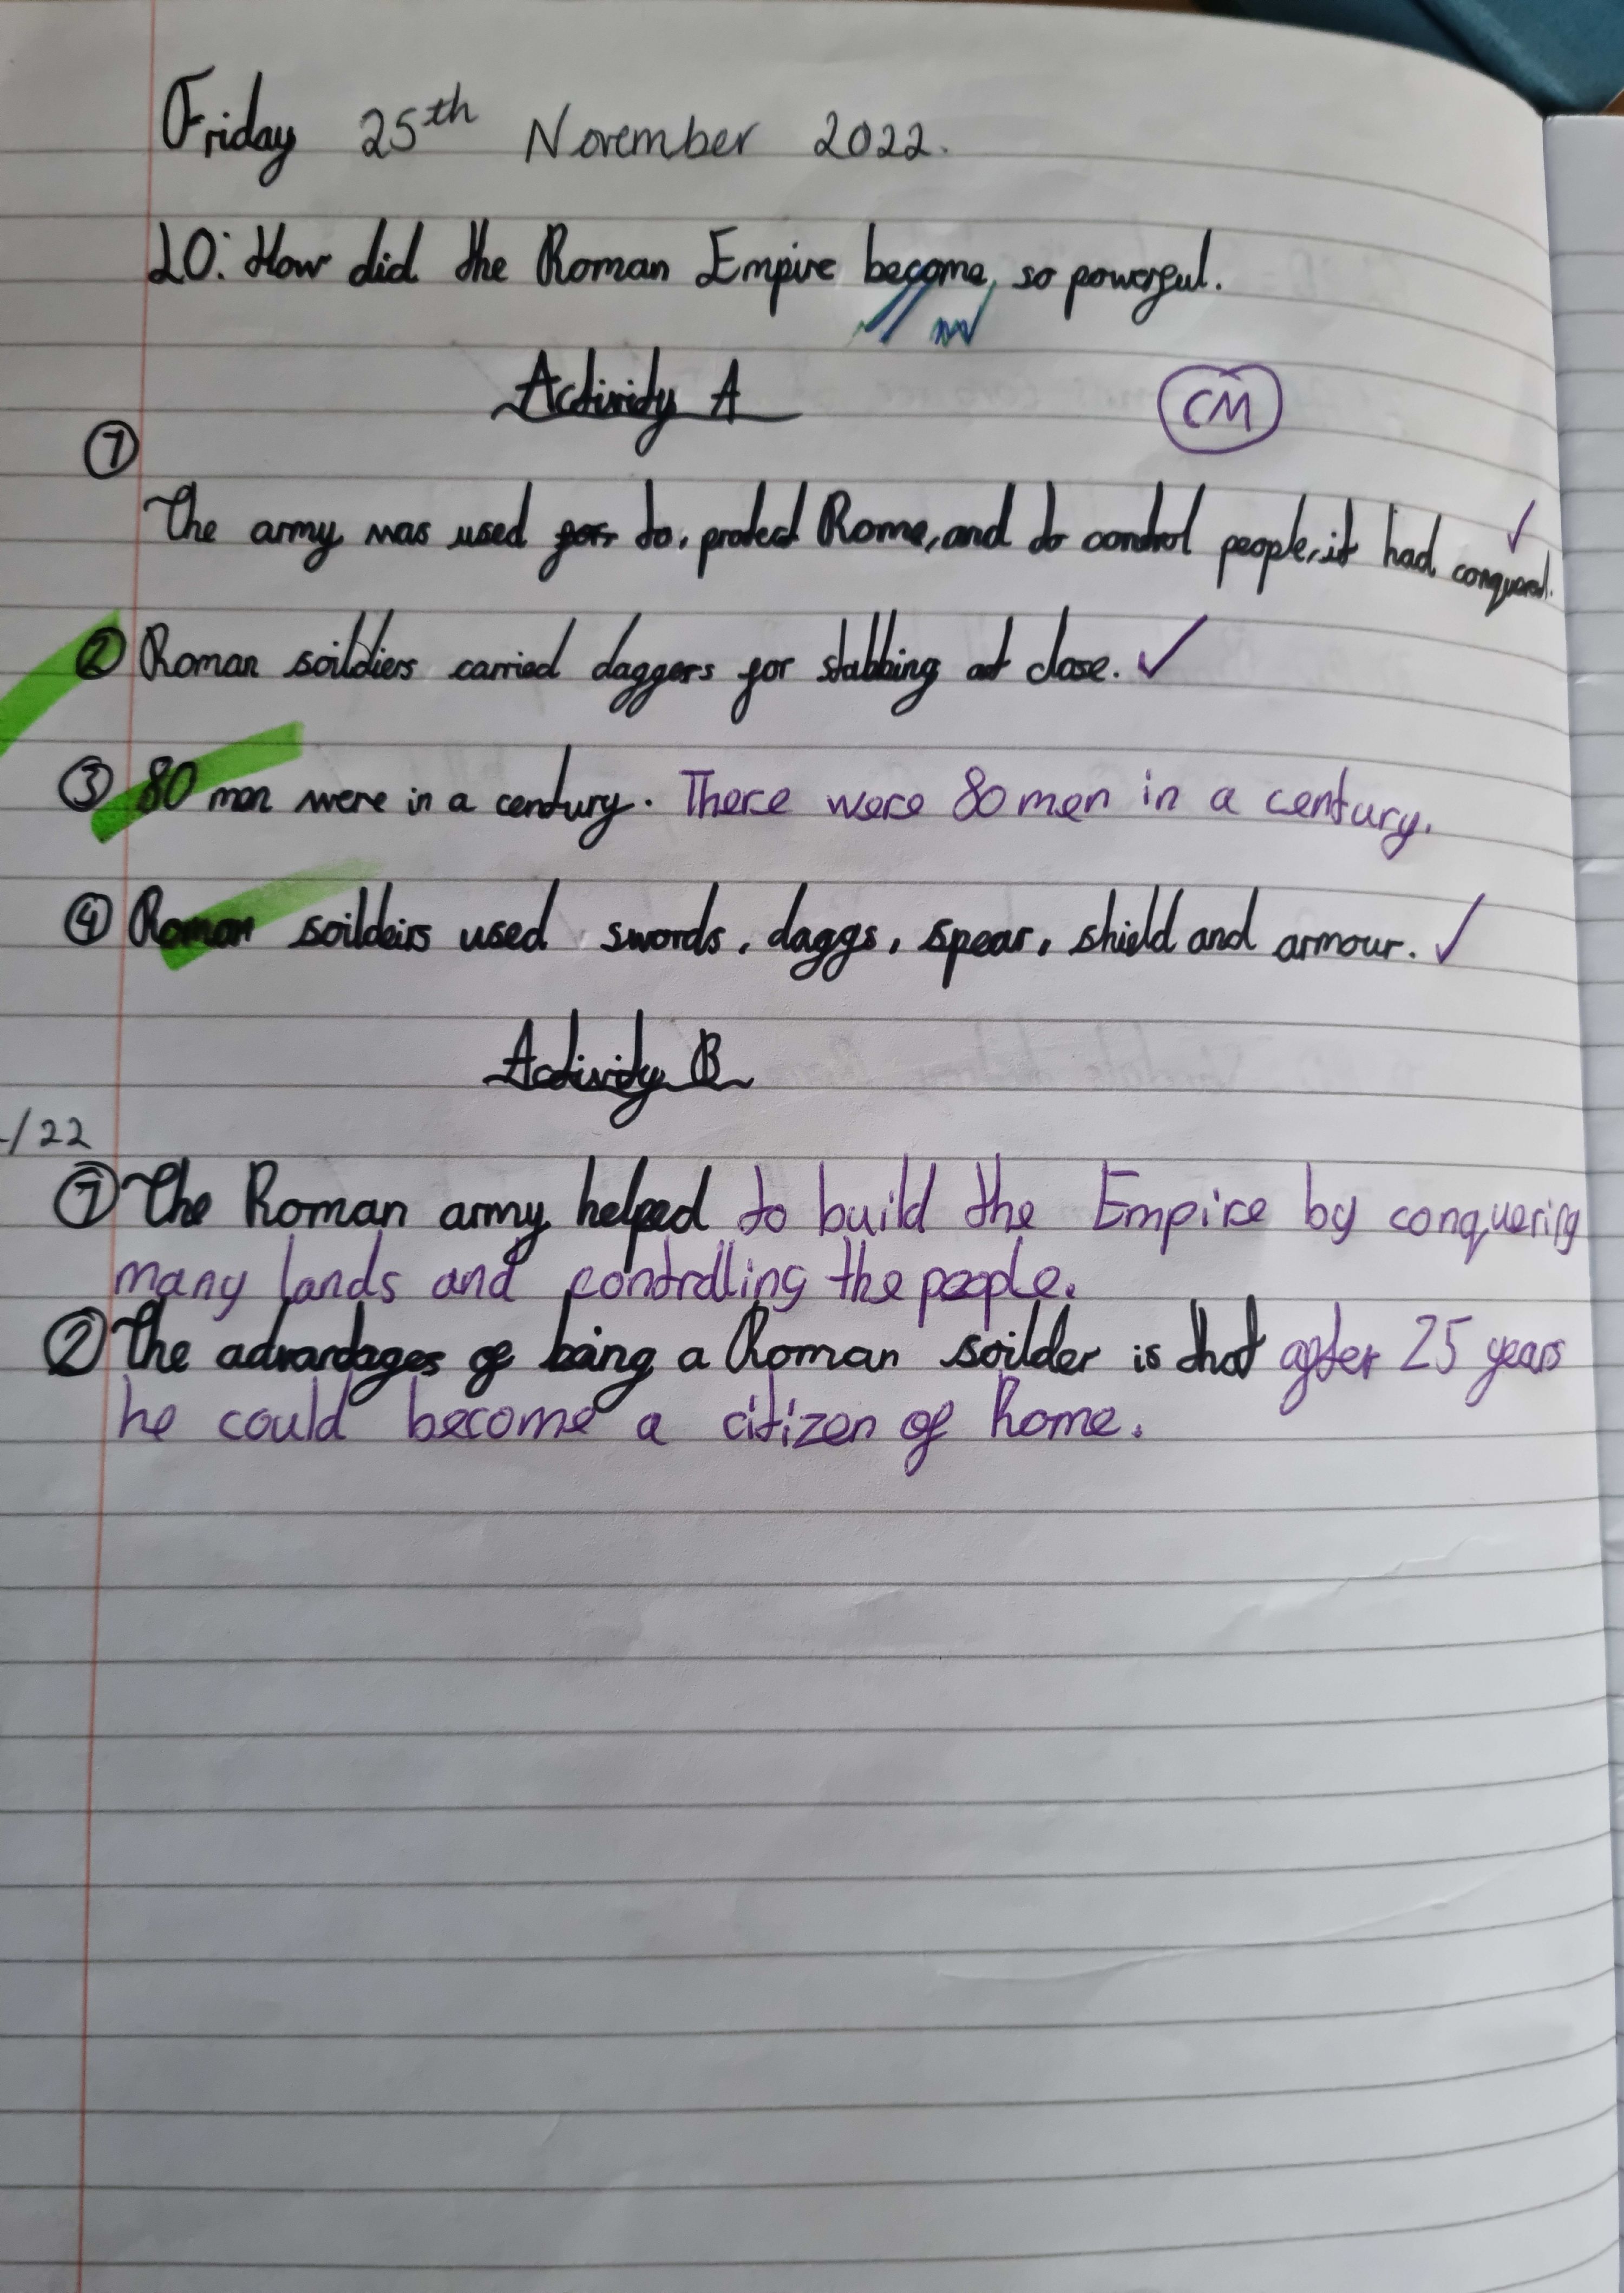 Friday 25th November 2022.
LO: How did the Roman Empire become so powerful.
Activity A
CM
①
The army was used for to, protect Rome, and to control people, it had conquerd.
② Roman soildiers carried daggers for stabbing at close.
③ 80 men were in a century. There were 80 men in a century.
④ Roman soildeirs used swords, daggs, spear, shield and armour.
Activity B
/22
① The Roman army helped to build the Empire by conquering
many lands and controlling the people.
② The advantages of being a Roman soilder is that after 25 years
he could become a citizen of Rome.